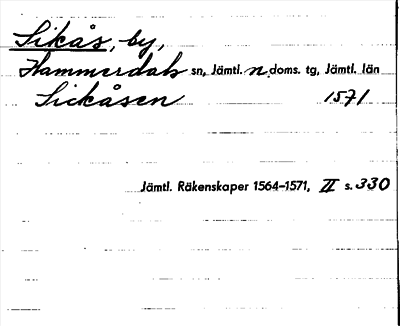 Sikås, by,
Hammerdals sn, Jämtl. n. doms. tg, Jämtl. län
Sickåsen 1571
Jämtl. Räkenskaper 1564–1571, II s. 330